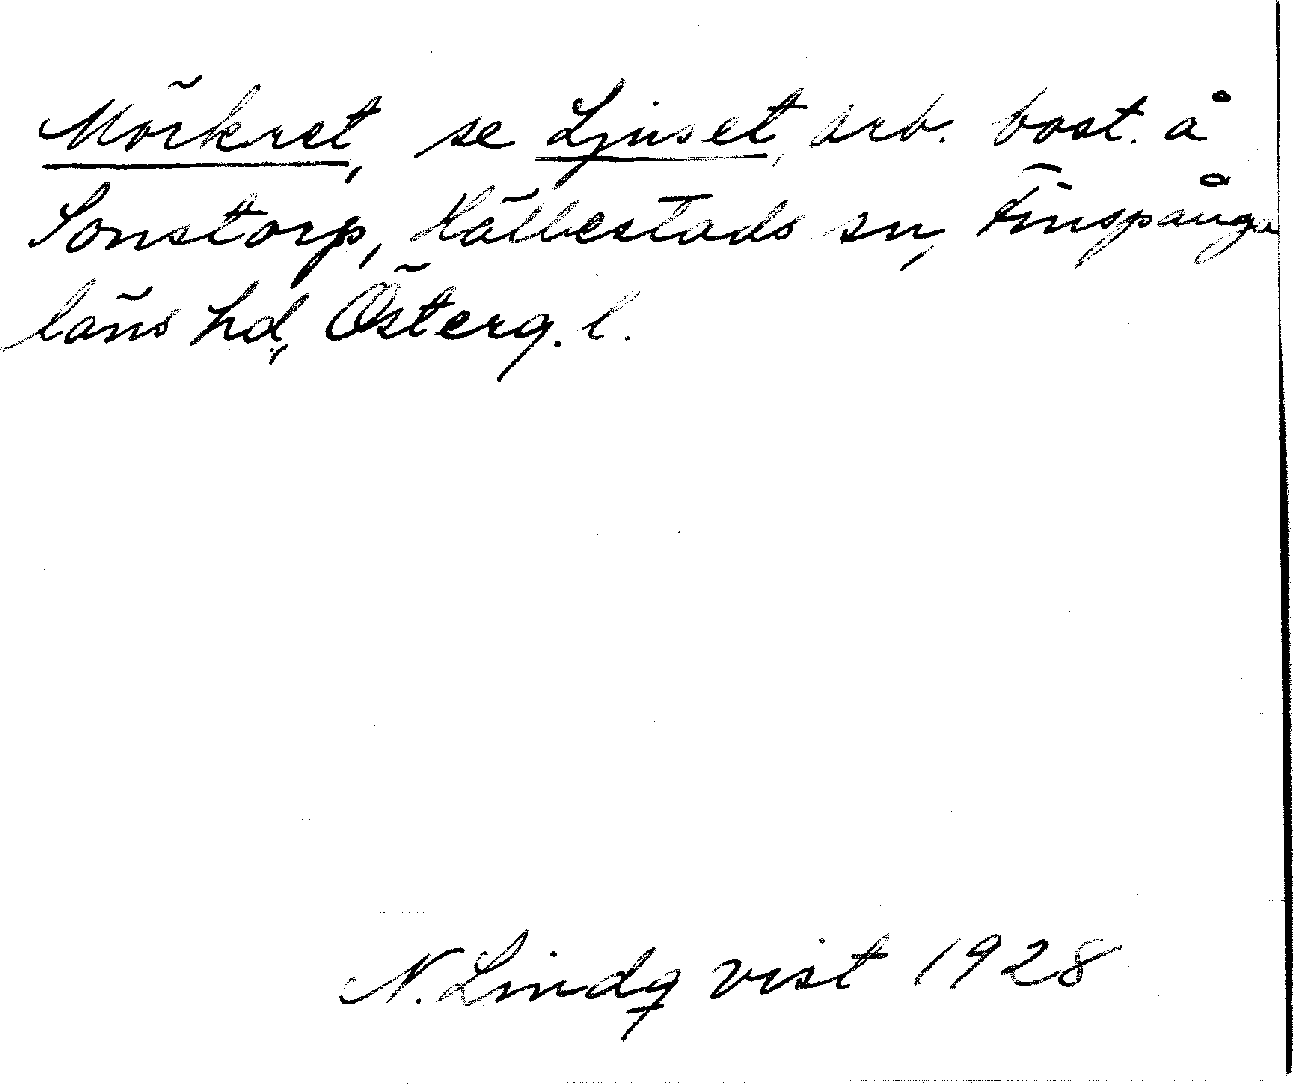 Mörkret, se Ljuset, arb. bost. å
Sonstorp, Hällestads sn, Finspånga
läns hd, Österg. l.
N. Lindqvist 1928